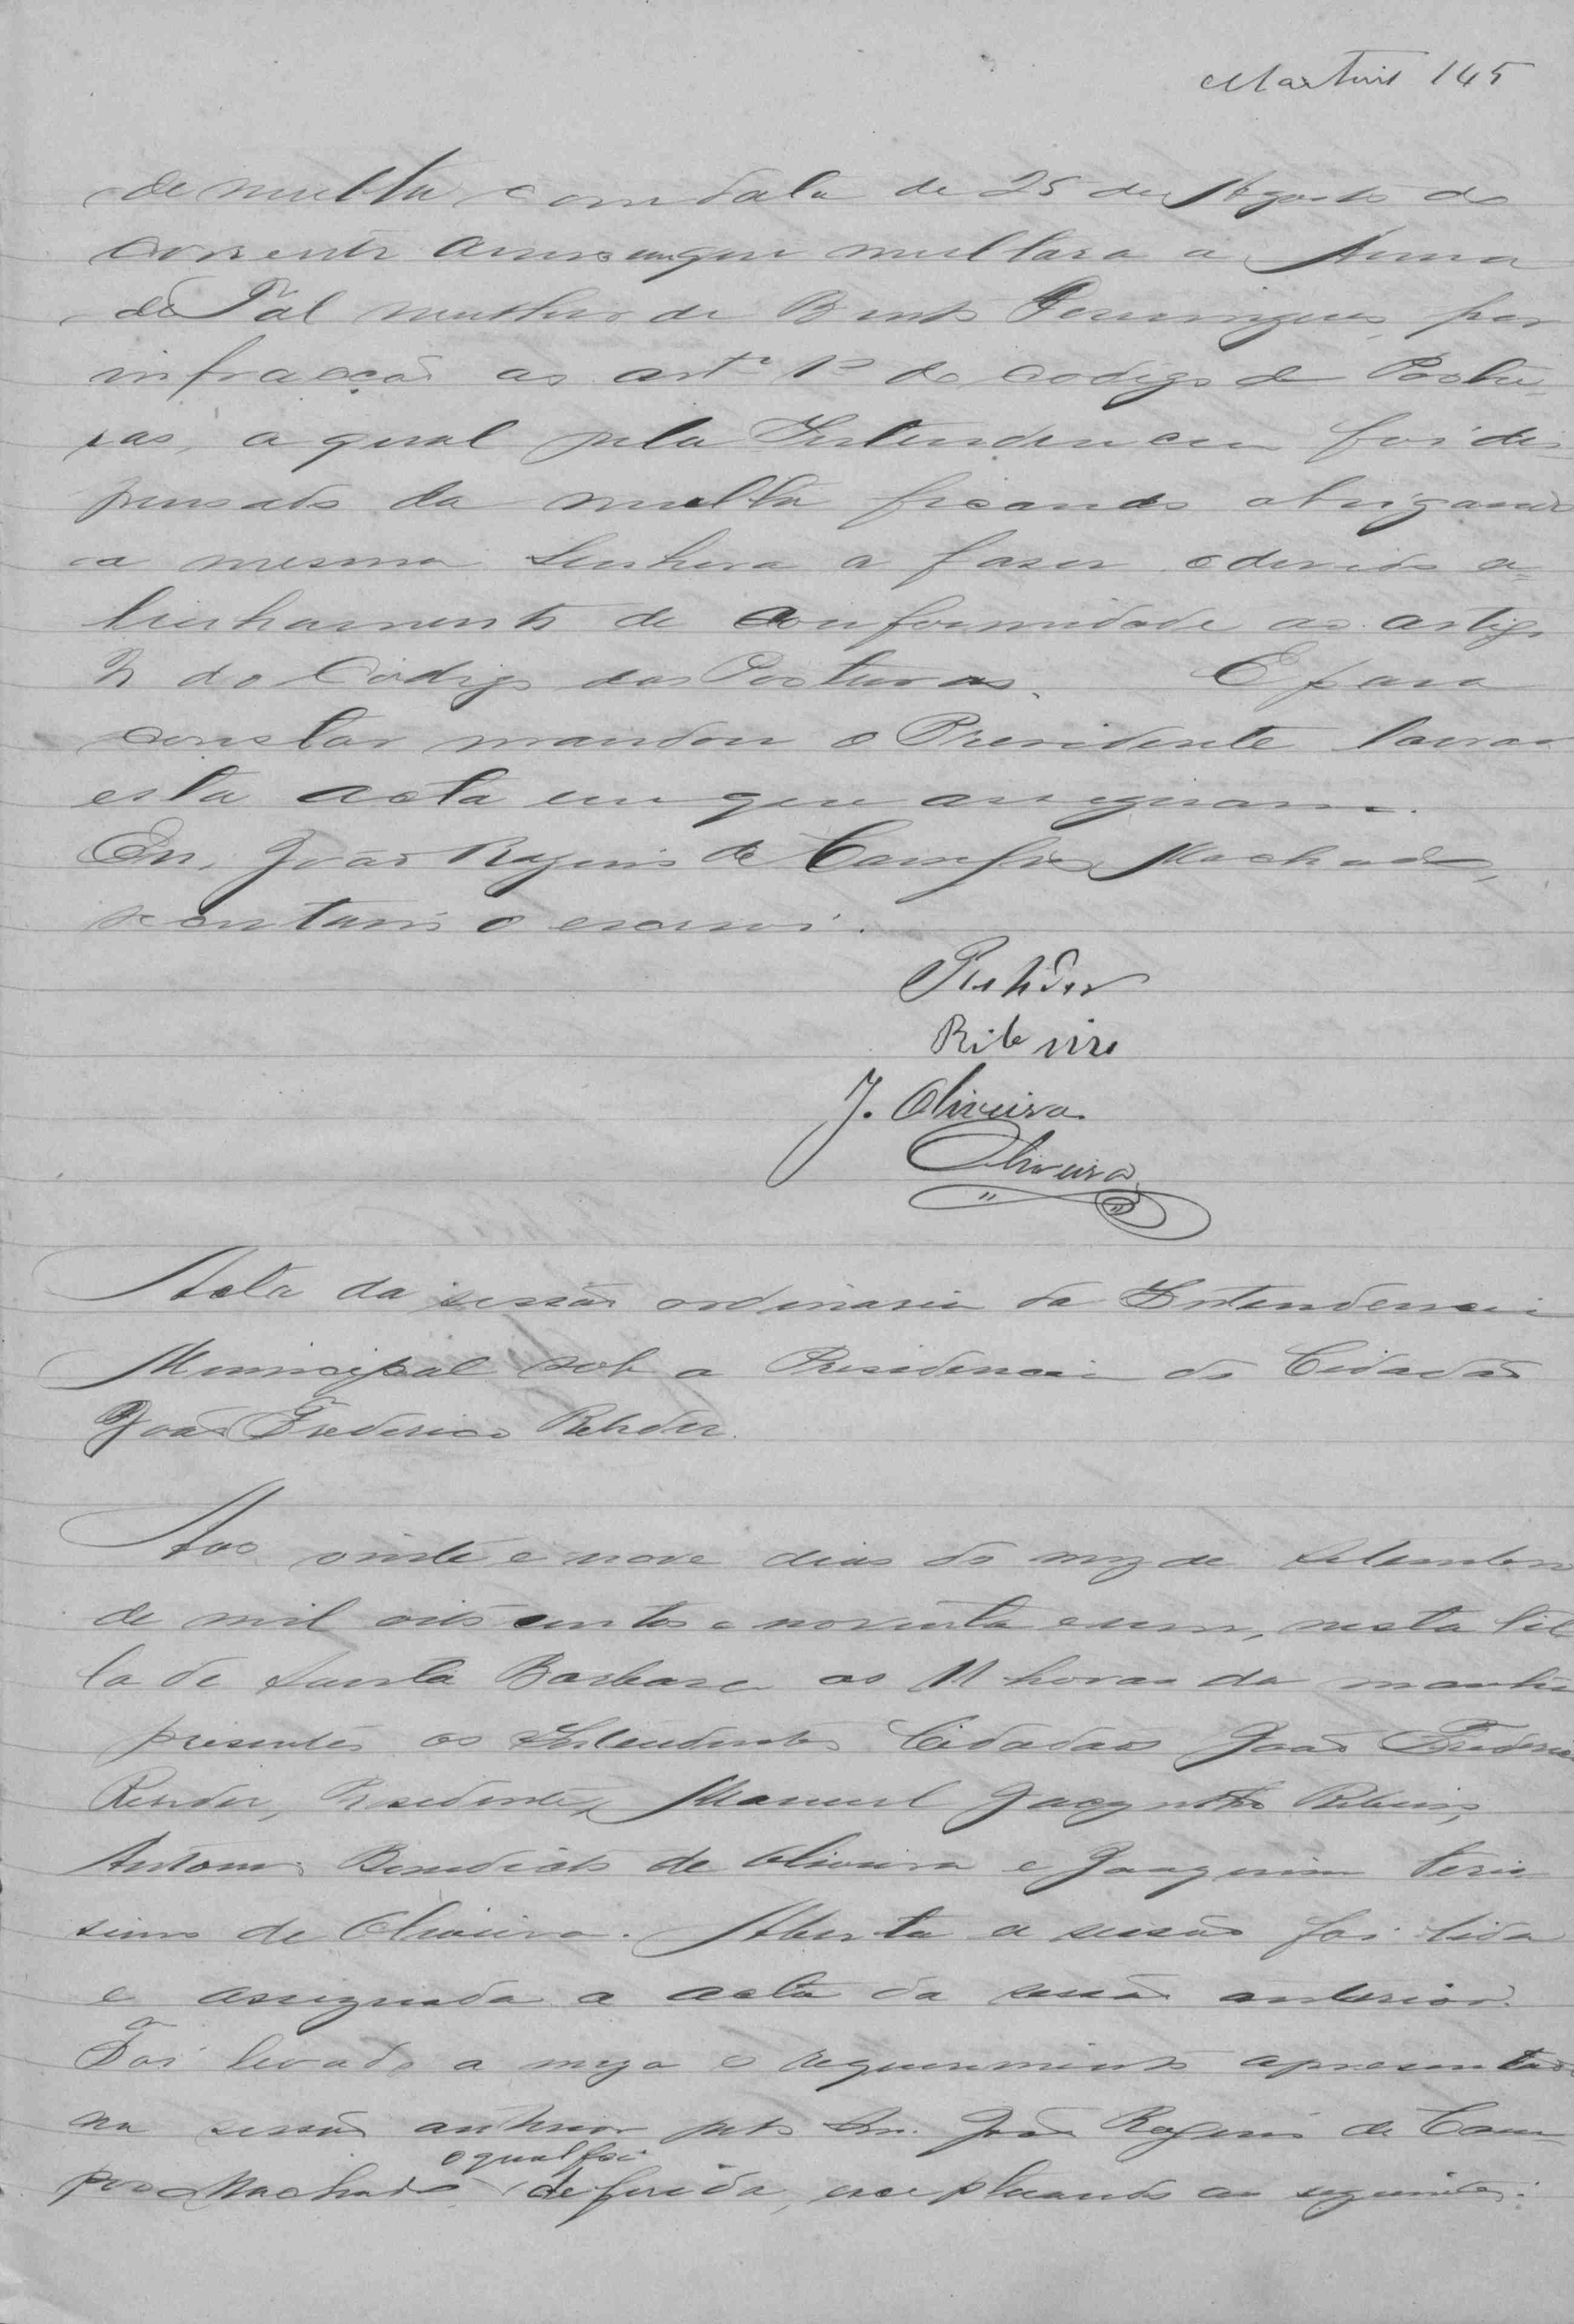 Martins 145
de multa com data de 25 de Agosto do
corrente anno em que multara a Anna
de Tal mulher de Bento Domingues, por
infracção ao artº 1º do codigo de Postu-
ras, a qual pela Intendencia foi dis
pensado da multa ficando obrigando
a mesma Senhora a faser o devido a=
linhamento de conformidade ao artigo
do Codigo das Posturas. E para
constar mandou o Presidente lavrar
esta acta em que assignam.
Eu, João Rozino de Campos Machado,
secretario o escrevi.
Rehder
Ribeiro
J. Oliveira
Oliveira
Acta da sessão ordinaria da Intendencia
Municipal sob a Presidencia do Cidadão
João Frederico Rehder.
Aos vinte e nove dias do mez de Setembro
de mil oito centos e noventa e um, nesta Vil
la de Santa Barbara as 11 horas da manhã
presentes os Intendentes Cidadãos João Frederico
Rehder, Presidente, Manuel Jacyntho Ribeiro,
Antonio Benedicto de Oliveira e Joaquim Veris
simo de Oliveira. Aberta a sessão foi lida
e assignada a acta da sessão anterior.
Foi levado a meza o requerimento apresentado
na sessão anterior pelo Snr. João Rozino de Cam-
o qual foi
pos Machado deferida, exceptuando as seguintes: